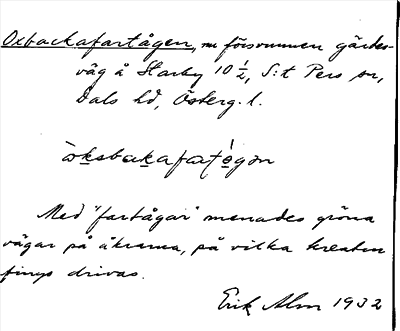 Oxbackafartågen, nu försvunnen gärdes-
väg å Starby 10 ½, S:t Pers sn,
Dals hd, Österg. l.
òksbakafatògon
Med "fartågar" menades gröna
vägar på åkrarna, på vilka kreaten
fingo drivas.
Erik Alm 1932